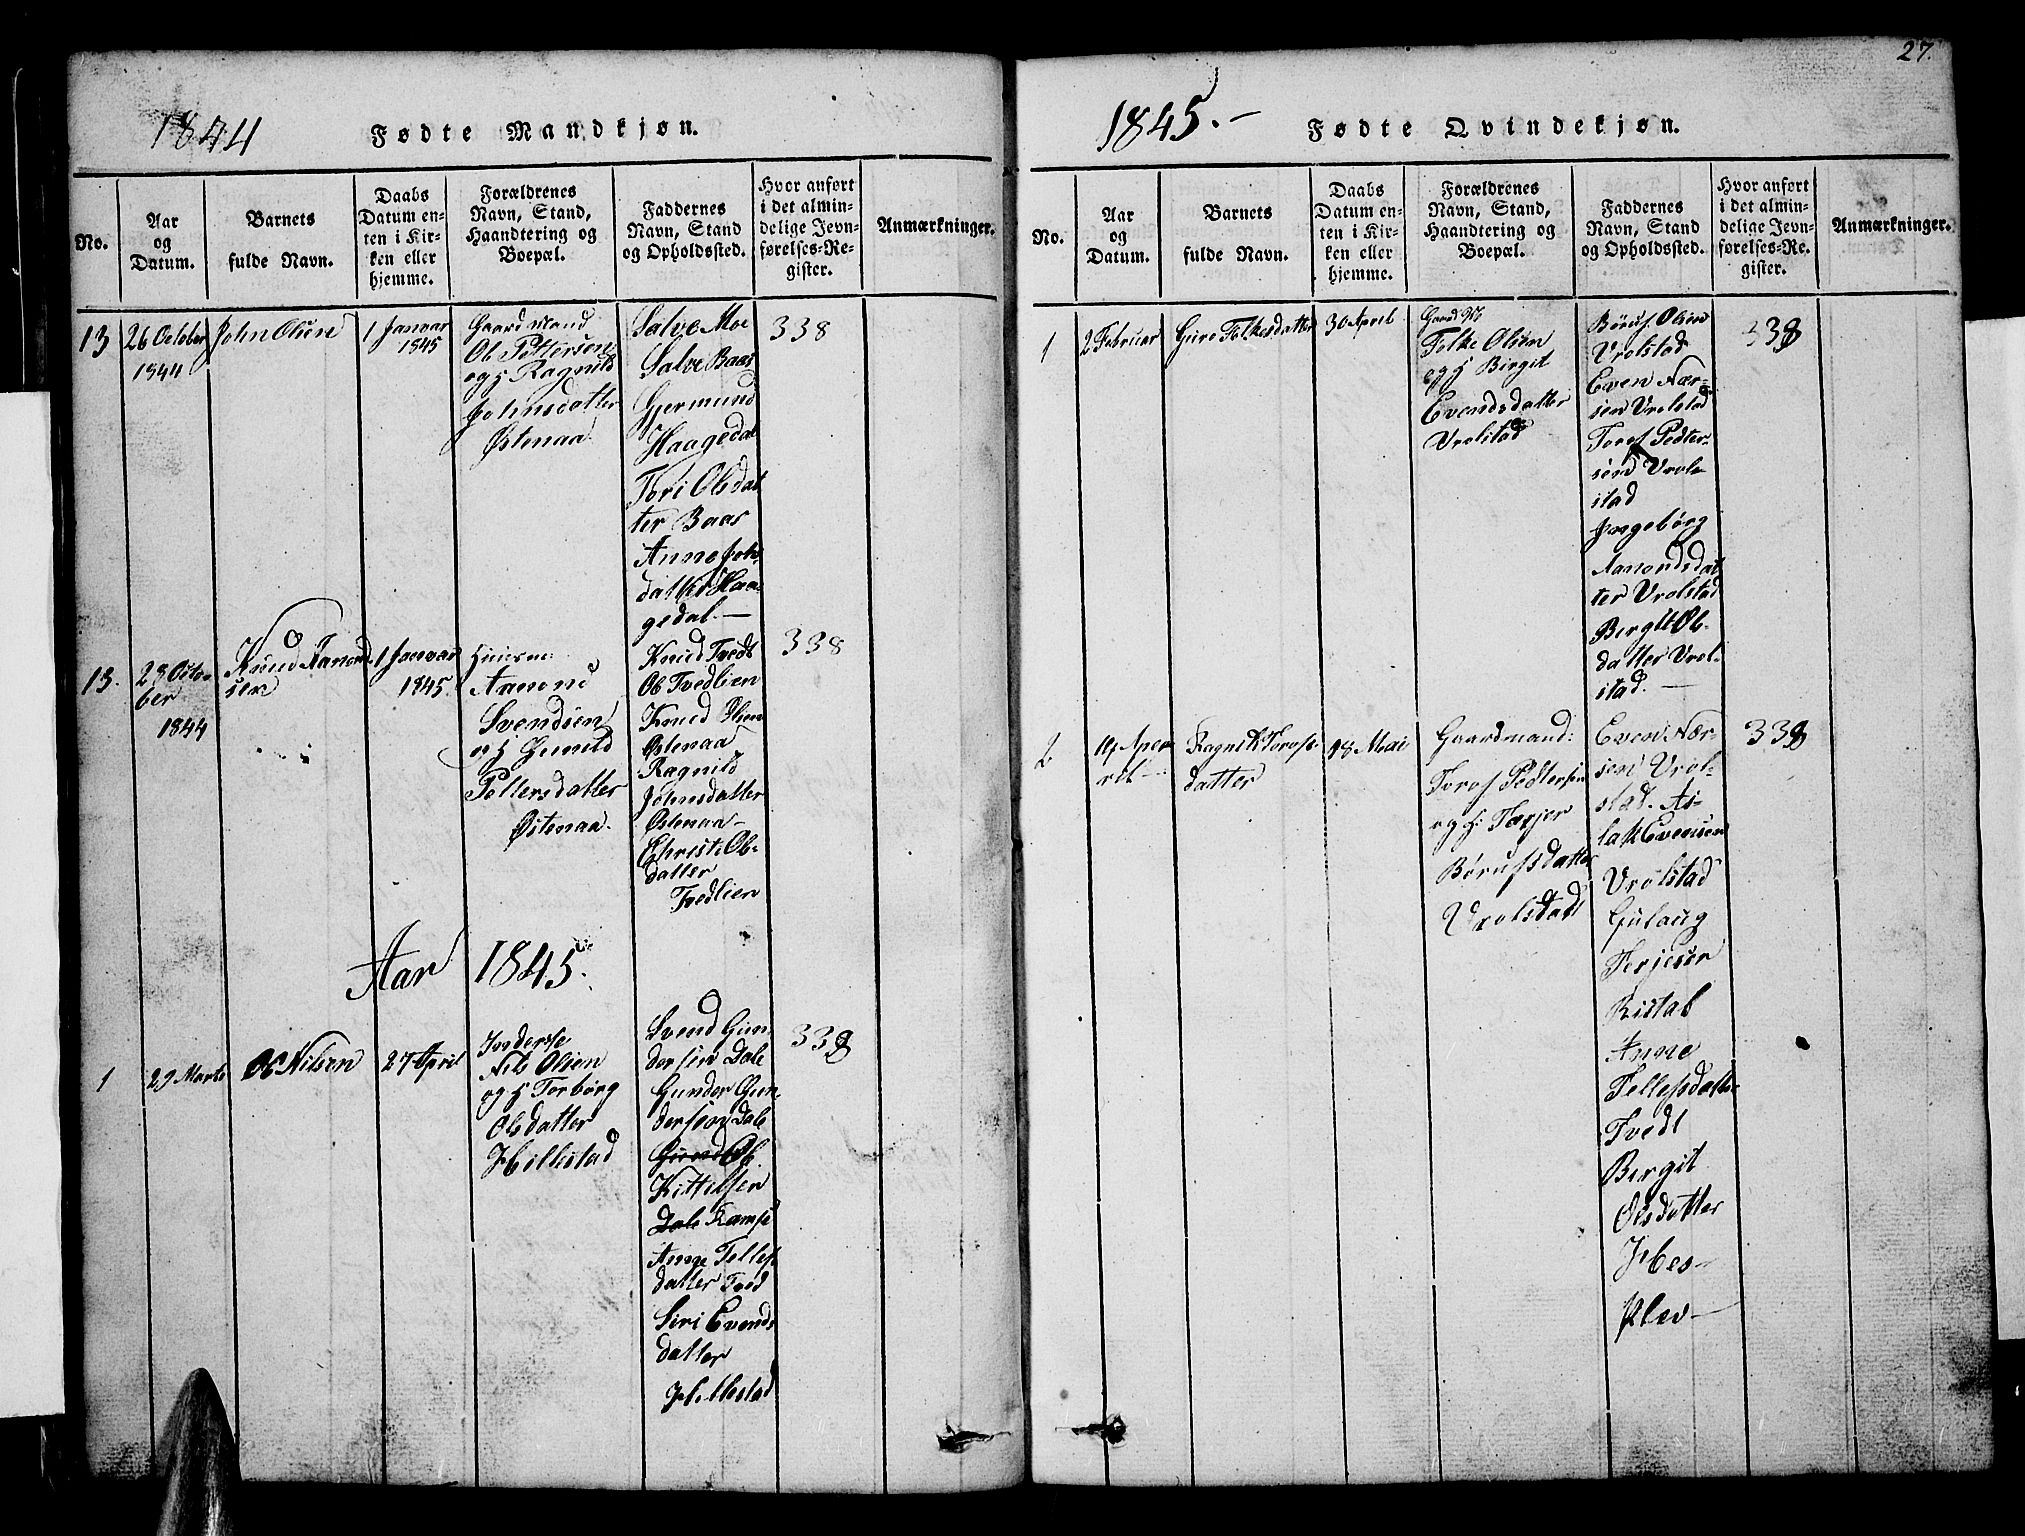 1844
Fødte Mandkjøn.
No.
Aar
og
Datum.
Barnets
fulde Navn.
Daabs
Datum en-
ten i Kir-
ken eller
hjemme.
Forældrenes
Navn, Stand,
Haandtering og
Boepæl.
Faddernes
Navn, Stand
og Opholdssted.
Hvor anført
i det almin-
delige Jevn-
førelses-Re-
gister.
Anmærkninger.
13
26 October
1844
John Olsen
1 Januar
1845
Gaardmand
Ole Pettersen
og H Ragnild
Johnsdatter
Østenaa
Salve Moe
Salve Baas
Gjermund
Haagedal
Tori Olsdat
ter Baas
Anne Johs
datter Haa-
gedal.—
338
13.
28 Octo-
ber
1844
Knud Aamond
sen
1 Januar
1845
Aamund
Svendsen
og H Gunild
Pettersdatter
Østenaa.
Knud Tvedt
Ole Tvedlien
Knud Olsen
Østenaa
Ragnild
Johnsdatter
Østenaa—
Christi Ols-
datter
Tvedlien
338
Aar 1845.
1
29 Marts
Ole Nilsen
27 April
Inderste
Nils Olsen
og H Torborg
Olsdatter
Hillestad
Svend Gun
dersen Dale
Gunder Gun-
dersen Dale
Ole
Kittelsen
Dale Ramse
Anne Tellefs
datter Tved
Siri Evends
datter
Hillestad
338
27.
1845.—
Fødte Qvindekjøn.
No.
Aar
og
Datum.
Barnets
fulde Navn.
Daabs
Datum en-
ten i Kir-
ken eller
hjemme.
Forældrenes
Navn, Stand,
Haandtering og
Boepæl.
Faddernes
Navn, Stand
og Opholdssted.
Hvor anført
i det almin-
delige Jevn-
førelses-Re-
gister.
Anmærkninger.
1
2 Februar
Guro Folkesdatter
30 April
Gaard M
Folke Olsen
og H Birgit
Evendsdatter
Vrolstad
Børuf Olsen
Vrolstad
Even Nær-
sen Vrolstad
Torof Pedter-
send Vrol-
stad
Ingebørg
Aamondsdat
ter Vrolstad
Birgit Ols-
datter Vrol-
stad.—
338
2
Ap-
ril—
Ragnild Torofs-
datter
18 Mai
Gaardmand:
Torof Pedtersen
og H: Tarjer
Børufsdatter
Vrolstad
Even Nær-
sen Vrol-
stad. As-
lak Evensen
Vrolstad
Gulaug
Terjesen
Ristøl
Anne
Tellefsdatter
Tvedt
Birgit
Olsdatter
Hes-
klev—
338